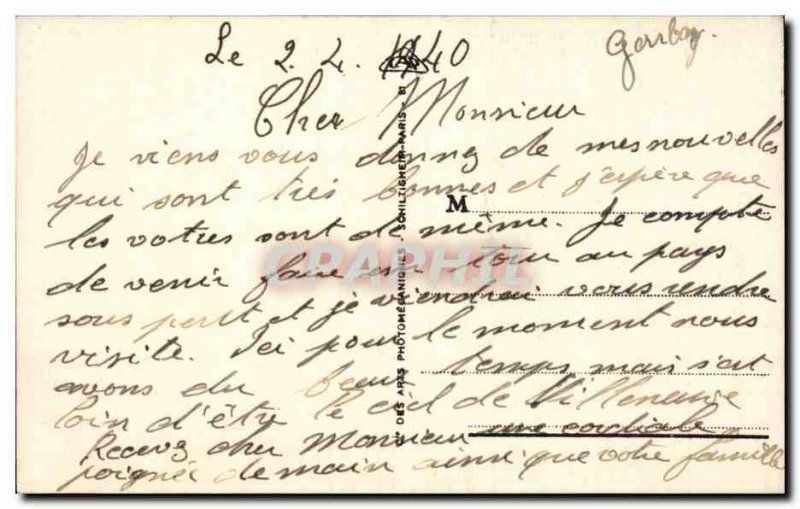 Le 2.4.1940
Cher Monsieur
Je viens vous donnez de mes nouvelles
qui sont très bonnes et j'espère que
les votres sont de même. Je compte
de venir faire un tour au pays
sous peut et je viendrai vous rendre
visite. Ici pour le moment nous
avons du beau temps mais s'est
loin d'être le ciel de Villeneuve
Recevez cher Monsieur une cordiale
poignée de main ainsi que votre famille
M
CIE DES ARTS PHOTOMÉCANIQUES - SCHILTIGHEIM-PARIS - 61
CARPHTL